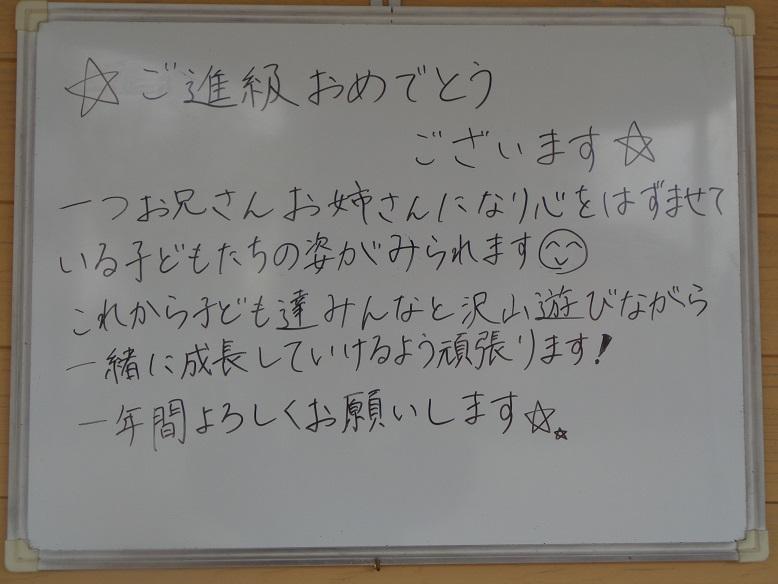 ☆ご進級おめでとう
ございます☆
一つお兄さんお姉さんになり心をはずませて
いる子どもたちの姿がみられます😊
これから子ども達みんなと沢山遊びながら
一緒に成長していけるよう頑張ります!
一年間よろしくお願いします☆☆